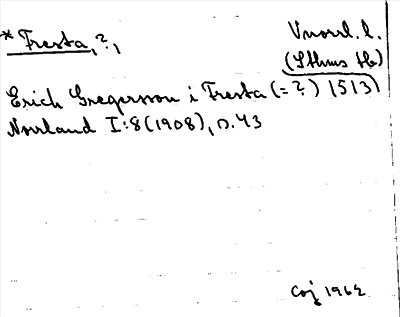 * Fresta, ?,
Vnorrl. l.
(Sthms Hb)
Erich Gregersson i Fresta (= ?) 1513)
Norrland I:8 (1908), s. 43
Coj 1962